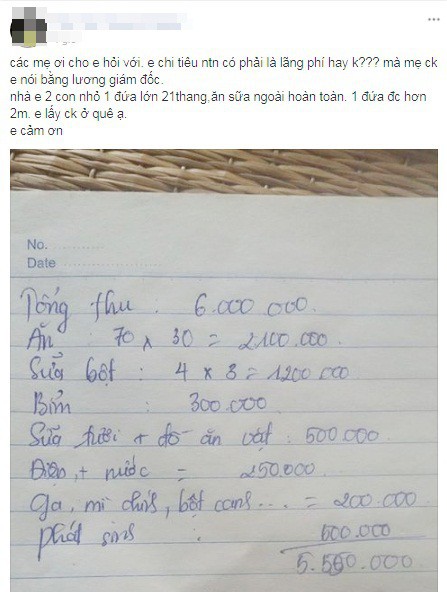 các mẹ ơi cho e hỏi với. e chi tiêu ntn có phải là lãng phí hay k??? mà mẹ ck
e nói bằng lương giám đốc.
nhà e 2 con nhỏ 1 đứa lớn 21thang,ăn sữa ngoài hoàn toàn. 1 đứa đc hơn
2m. e lấy ck ở quê ạ.
e cảm ơn
No.
Date
Tổng thu : 6.000.000.
Ăn : 70 x 30 = 2100.000.
Sữa bột : 4 x 3 = 1200.000
Bỉm : 300.000
Sữa tươi + đồ ăn vặt : 500.000
Điện + nước = 250.000
Ga, mì chính, bột canh ... = 200.000
phát sinh : 500.000
5.550.000.